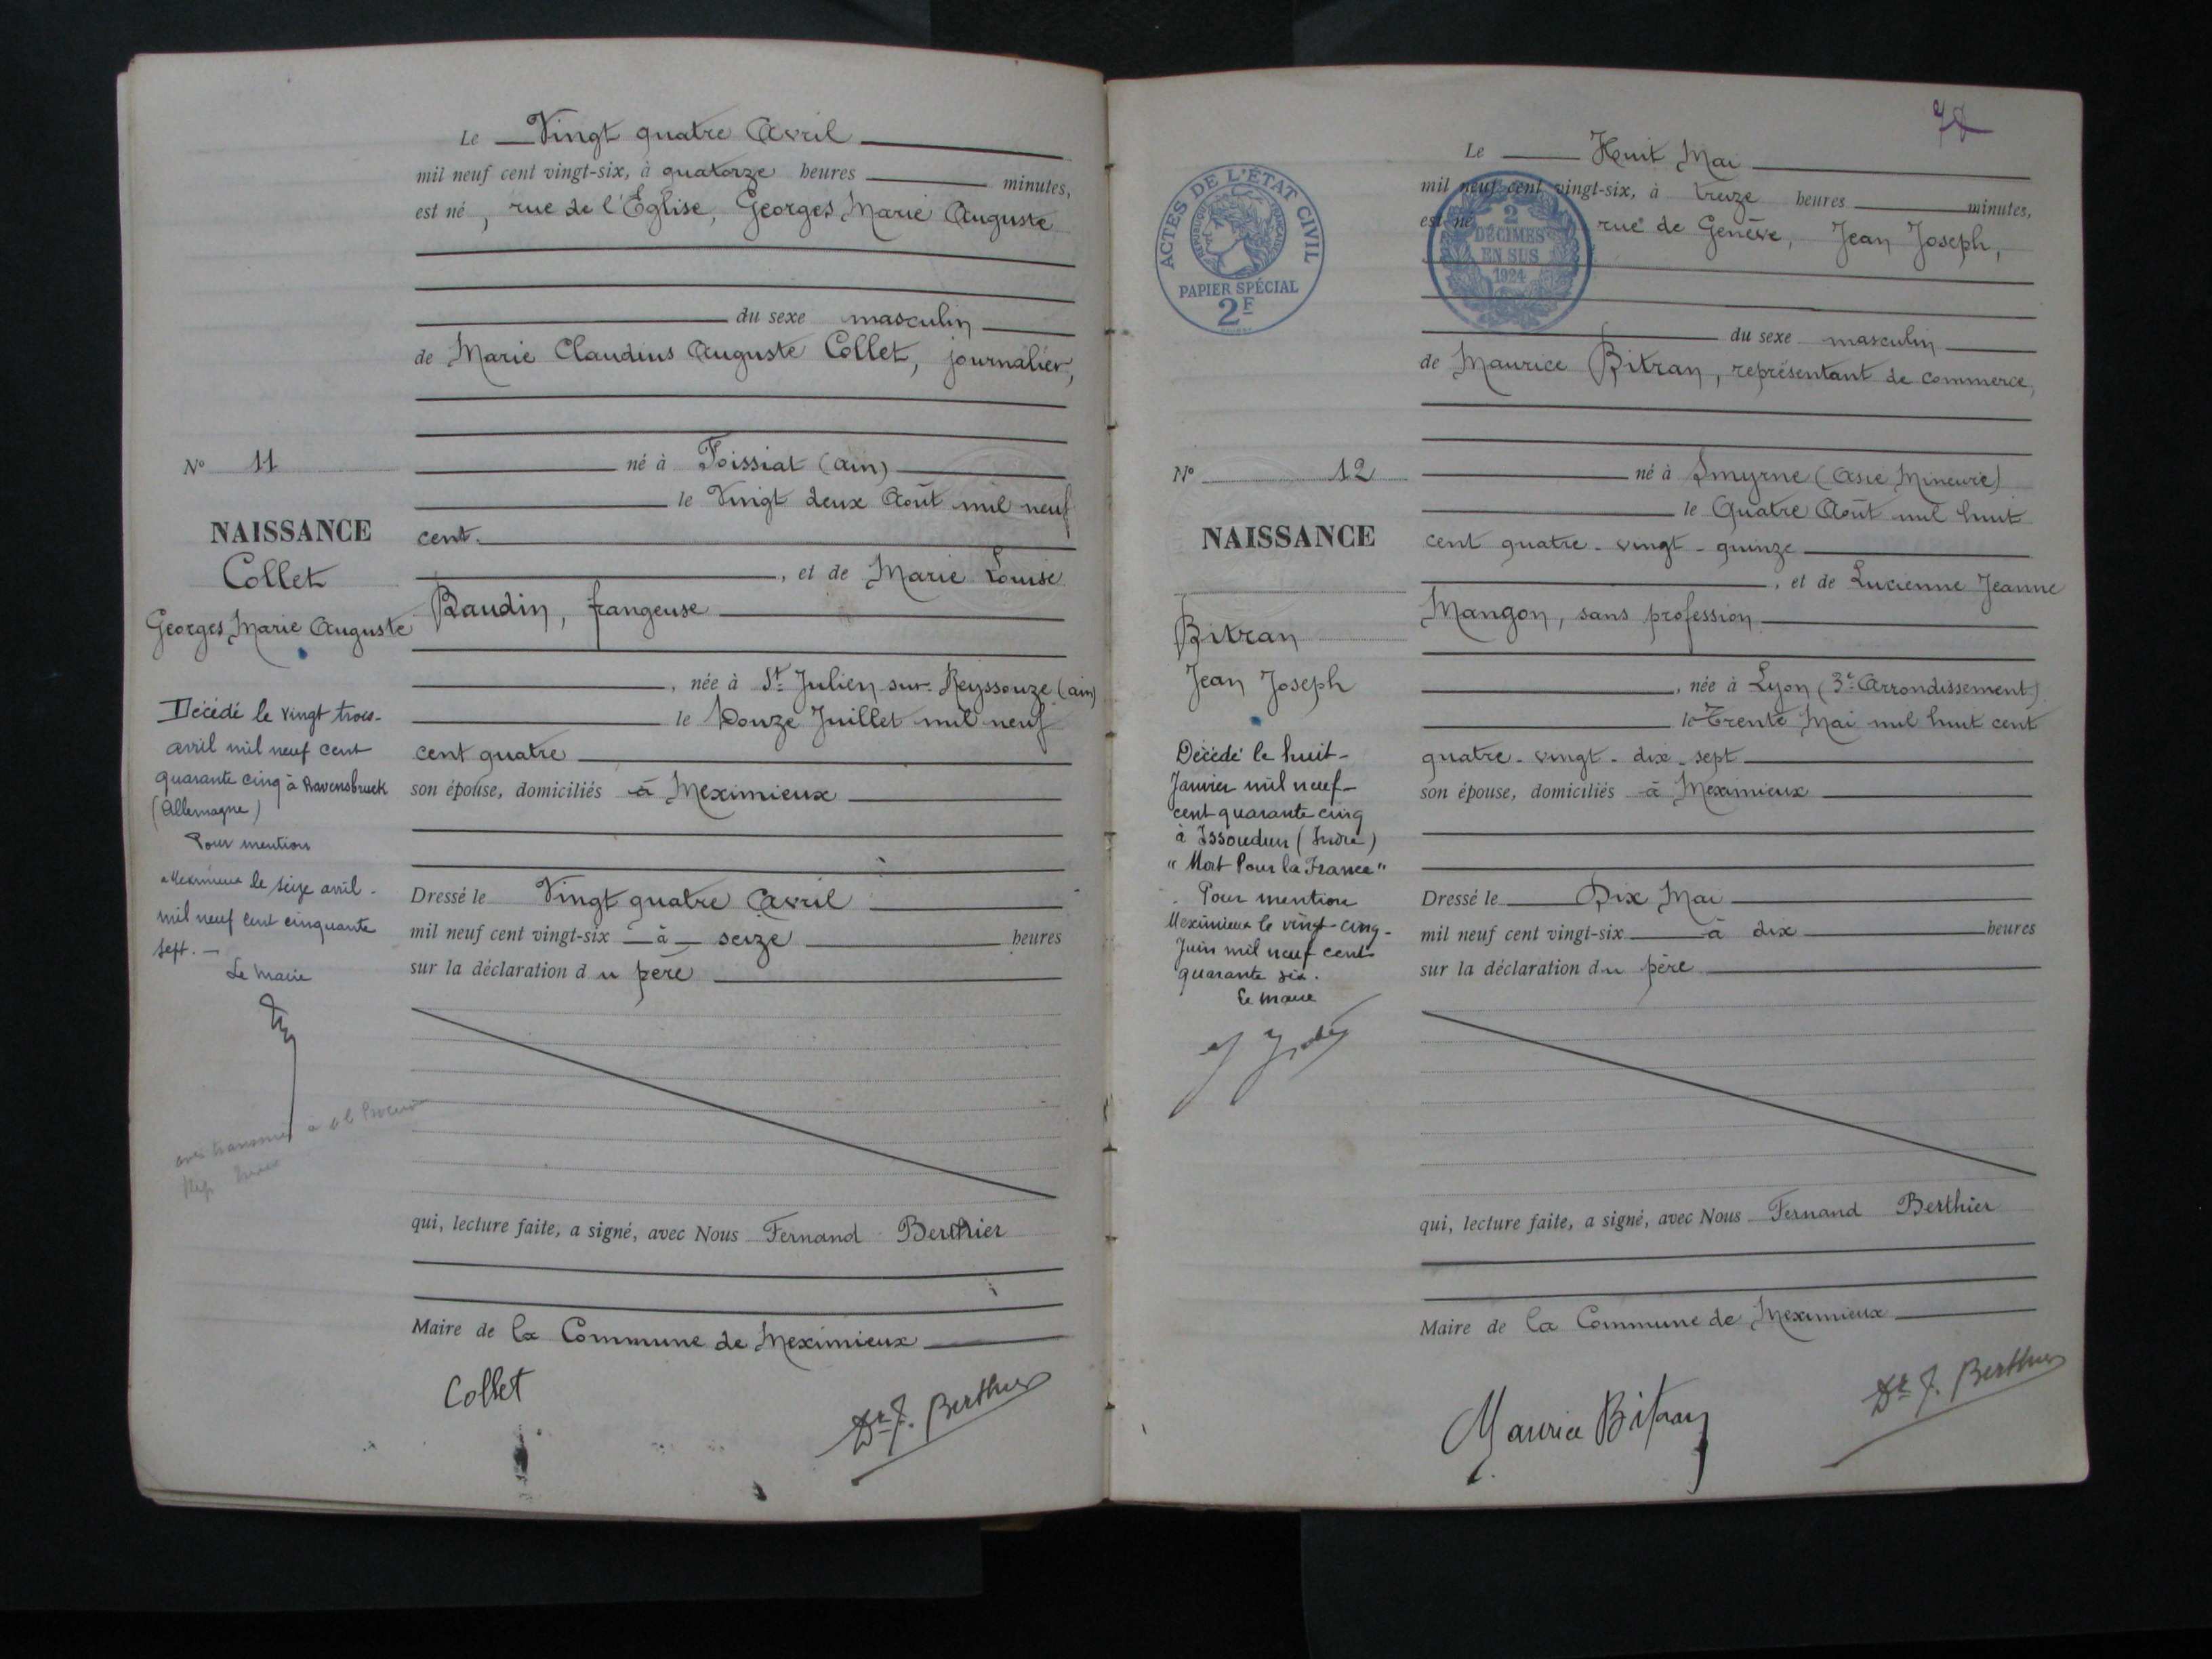 Le Vingt quatre Avril
mil neuf cent vingt-six, à quatorze heures minutes,
est né, rue de l'Église, Georges Marie Auguste
du sexe masculin
de Marie Claudius Auguste Collet, journalier,
né à Foissiat (Ain)
le Vingt deux Août mil neuf
cent.
, et de Marie Louise
Baudin, frangeuse
, née à St Julien-sur-Reyssouze (Ain)
le Douze Juillet mil neuf
cent quatre
son épouse, domiciliés à Meximieux
Dressé le Vingt quatre Avril
mil neuf cent vingt-six à seize heures
sur la déclaration du père
qui, lecture faite, a signé, avec Nous Fernand Berthier
Maire de la Commune de Meximieux
Collet
Dr F. Berthier
N° 11
NAISSANCE
Collet
Georges Marie Auguste
Décédé le vingt trois-
avril mil neuf cent
quarante cinq à Ravensbruck
(Allemagne)
Pour mention
Meximieux le seize avril -
mil neuf cent cinquante
sept. -
Le Maire
avis transmis a
78
ACTES DE L'ÉTAT CIVIL
RÉPUBLIQUE FRANÇAISE
PAPIER SPÉCIAL
2F
2
DÉCIMES
EN SUS
1924
Le Huit Mai
mil neuf cent vingt-six, à treize heures minutes,
est né rue de Genève, Jean Joseph,
du sexe masculin
de Maurice Bitran, représentant de commerce,
né à Smyrne (Asie Mineure)
le Quatre Août mil huit
cent quatre-vingt-quinze
, et de Lucienne Jeanne
Mangon, sans profession
, née à Lyon (3e Arrondissement)
le Trente Mai mil huit cent
quatre-vingt-dix-sept
son épouse, domiciliés à Meximieux
Dressé le Dix Mai
mil neuf cent vingt-six à dix heures
sur la déclaration du père
qui, lecture faite, a signé, avec Nous Fernand Berthier
Maire de la Commune de Meximieux
Maurice Bitran
Dr F. Berthier
N° 12
NAISSANCE
Bitran
Jean Joseph
Décédé le huit-
Janvier mil neuf-
cent quarante cinq
à Issoudun (Indre)
"Mort Pour la France"
Pour mention
Meximieux le vingt-cinq-
Juin mil neuf cent
quarante six.
Le maire